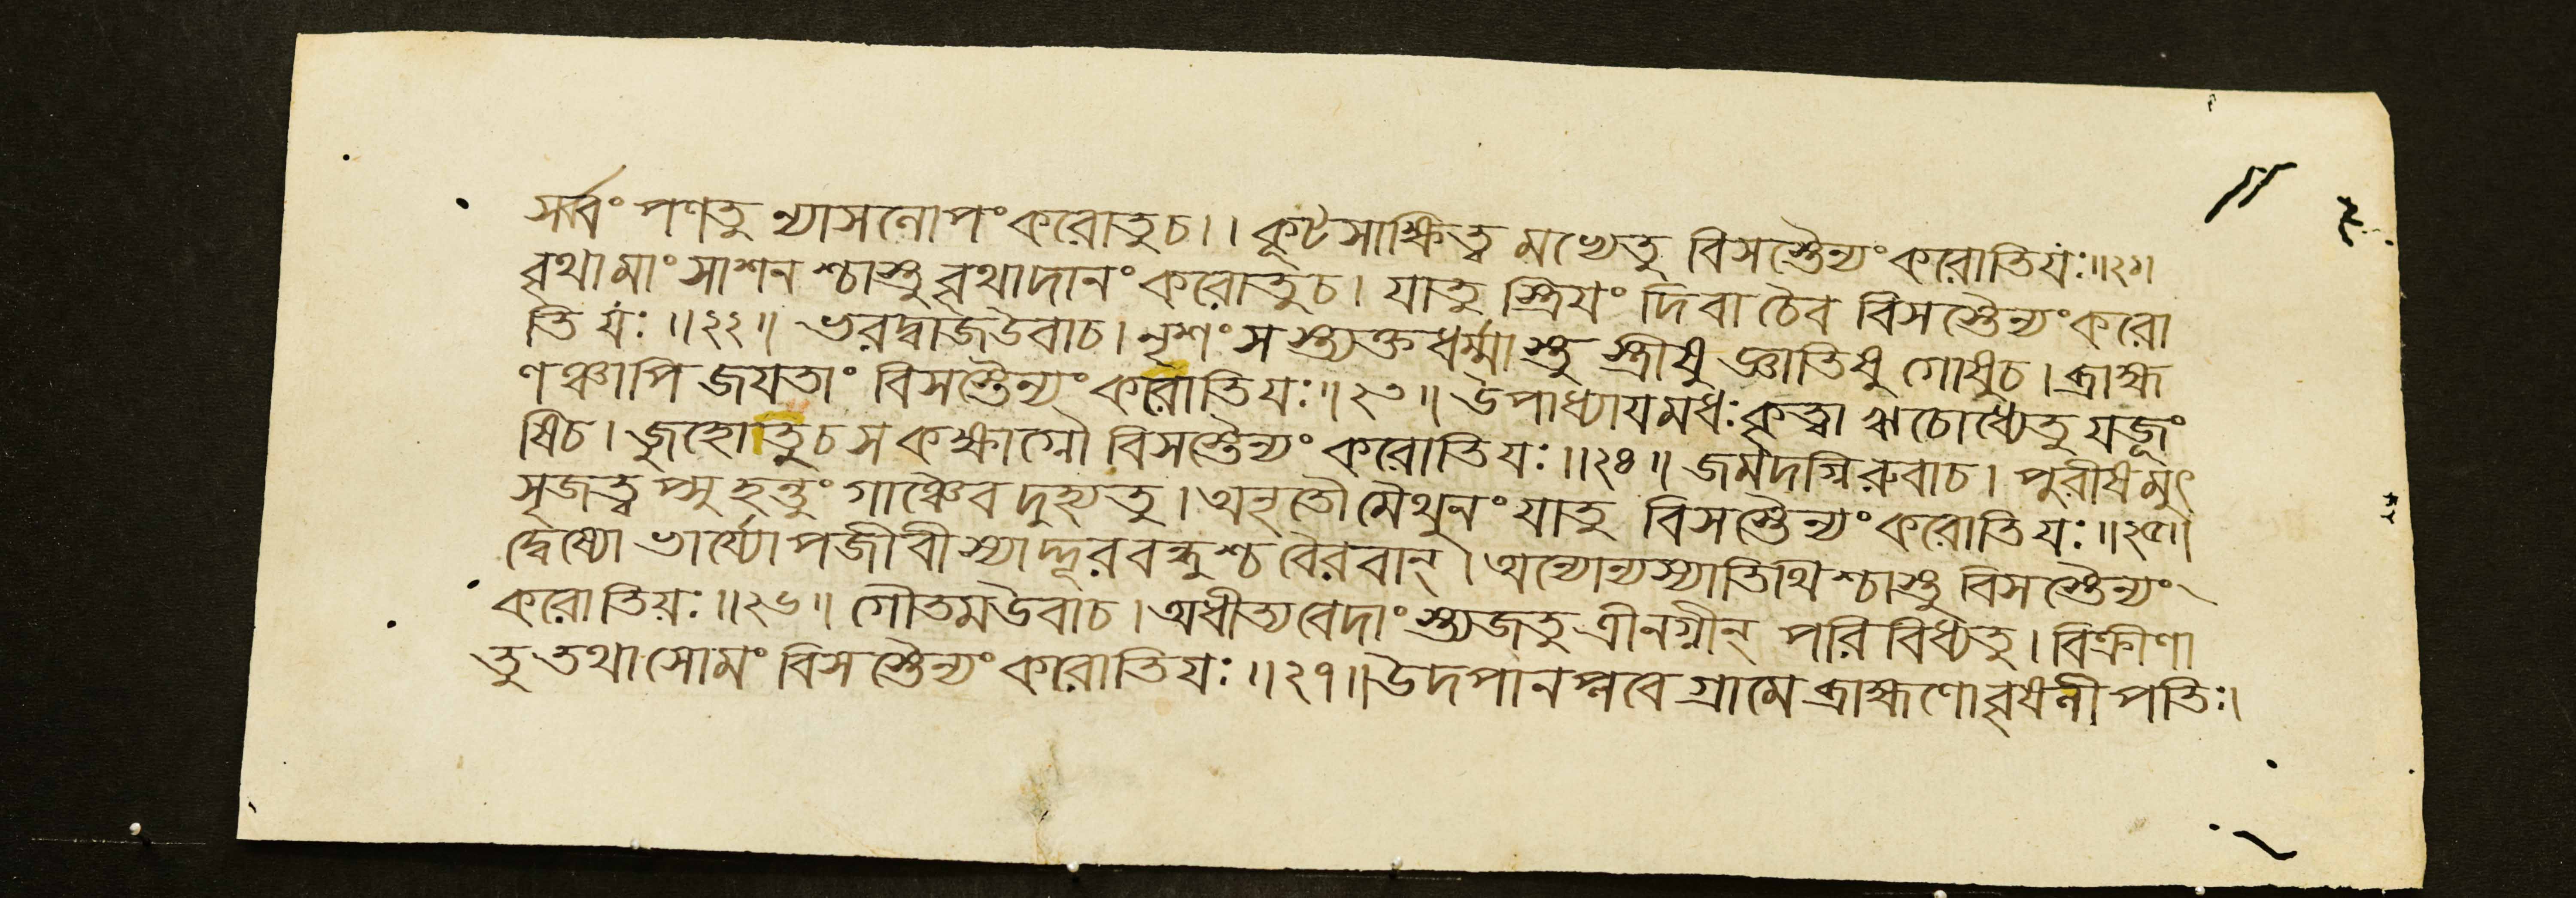 সর্ব্বং পণতু ন্যাসনোপং করোতু চ।। কূটসাক্ষিত্ব মখ্যেতু বিসস্তৈন্যং করোতিযঃ॥২১।
ৱৃথামাংসাশনশ্চাস্তু ৱৃথাদানং করোতুচ। যাতু স্ত্রিযং দিবা চৈব বিসস্তৈন্যং করো
তি যঃ॥২২॥ ভরদ্বাজউবাচ। নৃশংসস্ত্যক্তধর্ম্মাস্তু স্ত্রীষু জ্ঞাতিষু গোষুচ। ব্রাহ্ম
ণঞ্চাপি জযতাং বিসস্তৈন্যং করোতিযঃ॥২৩॥ উপাধ্যাযমধঃকৃত্বা ঋচোধ্যেতু যজূং
ষিচ। জুহোতুচ সকক্ষাগ্নৌ বিসস্তৈন্যং করোতিযঃ॥২৪॥ জমদগ্নিরুবাচ। পুরীষমুৎ
সৃজত্বপ্সু হন্তুং গাঞ্চৈব দুহ্যতু। অনৃতৌ মৈথুনং যাতু বিসস্তৈন্যং করোতিযঃ॥২৫॥
দ্বেষ্যো ভার্য্যোপজীবী স্যাদ্দূরবন্ধুশ্চ বৈরবান্। অন্যোন্যস্যাতিথিশ্চাস্তু বিসস্তৈন্যং
করোতিয়ঃ॥২৬॥ গৌতমউবাচ। অধীত্যবেদাংস্ত্যজতু ত্রীনগ্নীন্ পরিবিধ্যতু। বিক্রীণা
তু তথা সোমং বিসস্তৈন্যং করোতিযঃ॥২৭॥ উদপানপ্লবে গ্রামে ব্রাহ্মণোৱৃষলীপতিঃ।